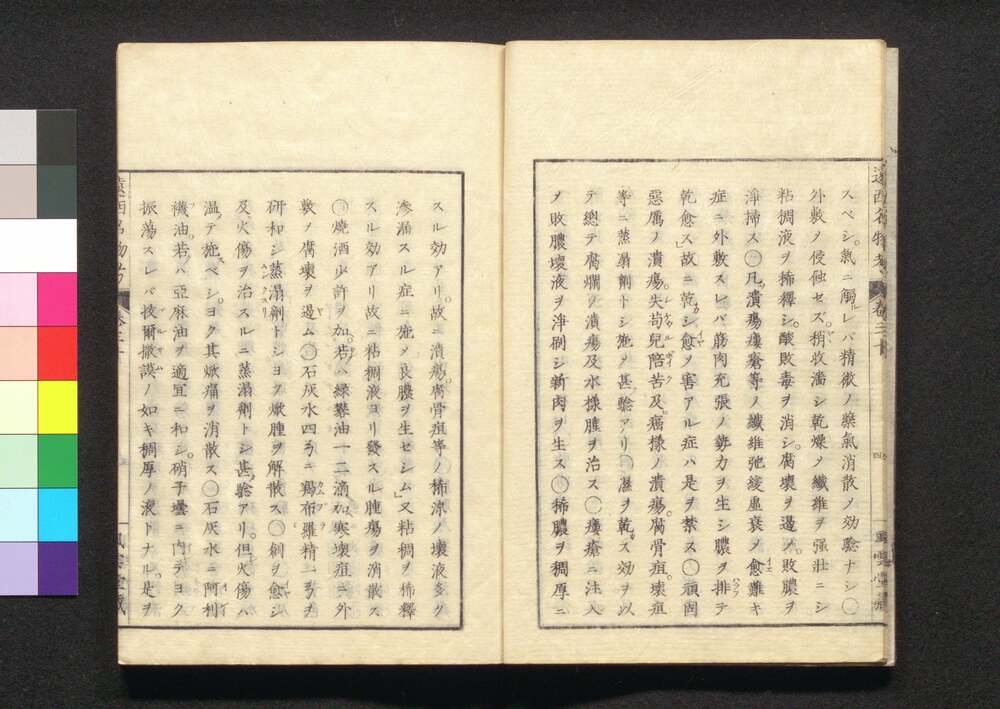 スベシ。氣ニ觸レバ精微ノ藥氣消散シメ効驗ナシ〇
外敷ノ侵蝕セズ。稍收濇シ乾燥シメ纖維ヲ强壮ニシ
粘稠液ヲ稀釋シ。酸敗毒ヲ消シ。腐壞ヲ遏メ。敗膿ヲ
淨掃ス〇凡潰瘍瘻瘡等ノ纖維弛緩虛衰シメ愈難キ
症ニ外敷スレバ筋肉充張ノ勢力ヲ生シ膿ヲ排テ
乾愈ス」故ニ乾シ愈シメ害アル症ハ是ヲ禁ス〇頑固
惡厲ノ潰瘍。失苟兒陪苦及。癌樣ノ潰瘍。腐骨疽。壞疽
等ニ蒸溻劑トシ施シメ甚驗アリ〇濕ヲ乾スノ効ヲ以
テ總テ腐爛ノ潰瘍及水樣腫ヲ治ス〇瘻瘡ニ注入
シメ敗膿壞液ヲ淨刷シ新肉ヲ生ス〇稀膿ヲ稠厚ニ
スル効アリ。故ニ潰瘍。腐骨疽等ノ稀凉ノ壞液多ク
滲漏スル症ニ施シメ良膿ヲ生セシム」又粘稠ヲ稀釋
スル効アリ故ニ粘稠液ヨリ發スル腫瘍ヲ消散ス
〇燒酒少許ヲ加。若ハ綠礬油一二滴加寒壞疽ニ外
敷シメ腐壞ヲ遏ム〇石灰水四勺ニ羯布羅精一勺ヲ
研和シ蒸溻劑トシヨク焮腫ヲ解散ス〇創ヲ愈シ
及火傷ヲ治スルニ蒸溻劑トシ甚驗アリ。但火傷ハ
温テ施スベシ。ヨク其焮痛ヲ消散ス〇石灰水ニ阿利
襪油。若ハ亞麻油ヲ適宜ニ和シ。硝子壜ニ内テヨク
振蕩スレバ拔爾撒謨ノ如キ稠厚ノ液トナル。是ヲ